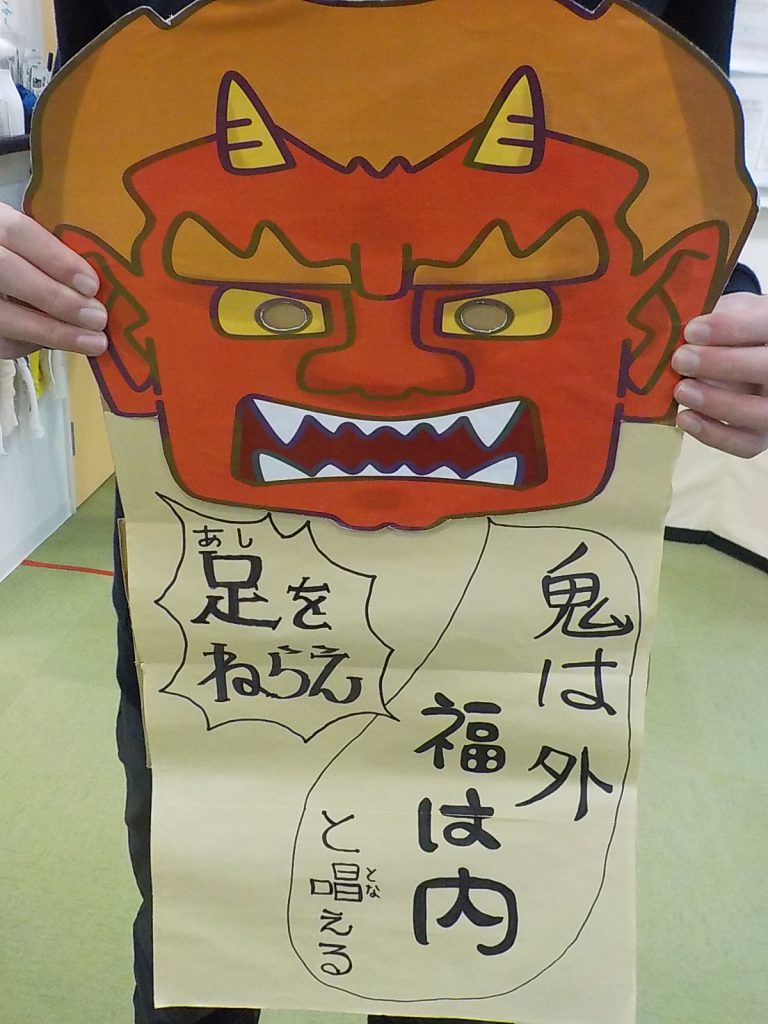 鬼は外
福は内
と唱える
とな
あし
足を
ねらえ